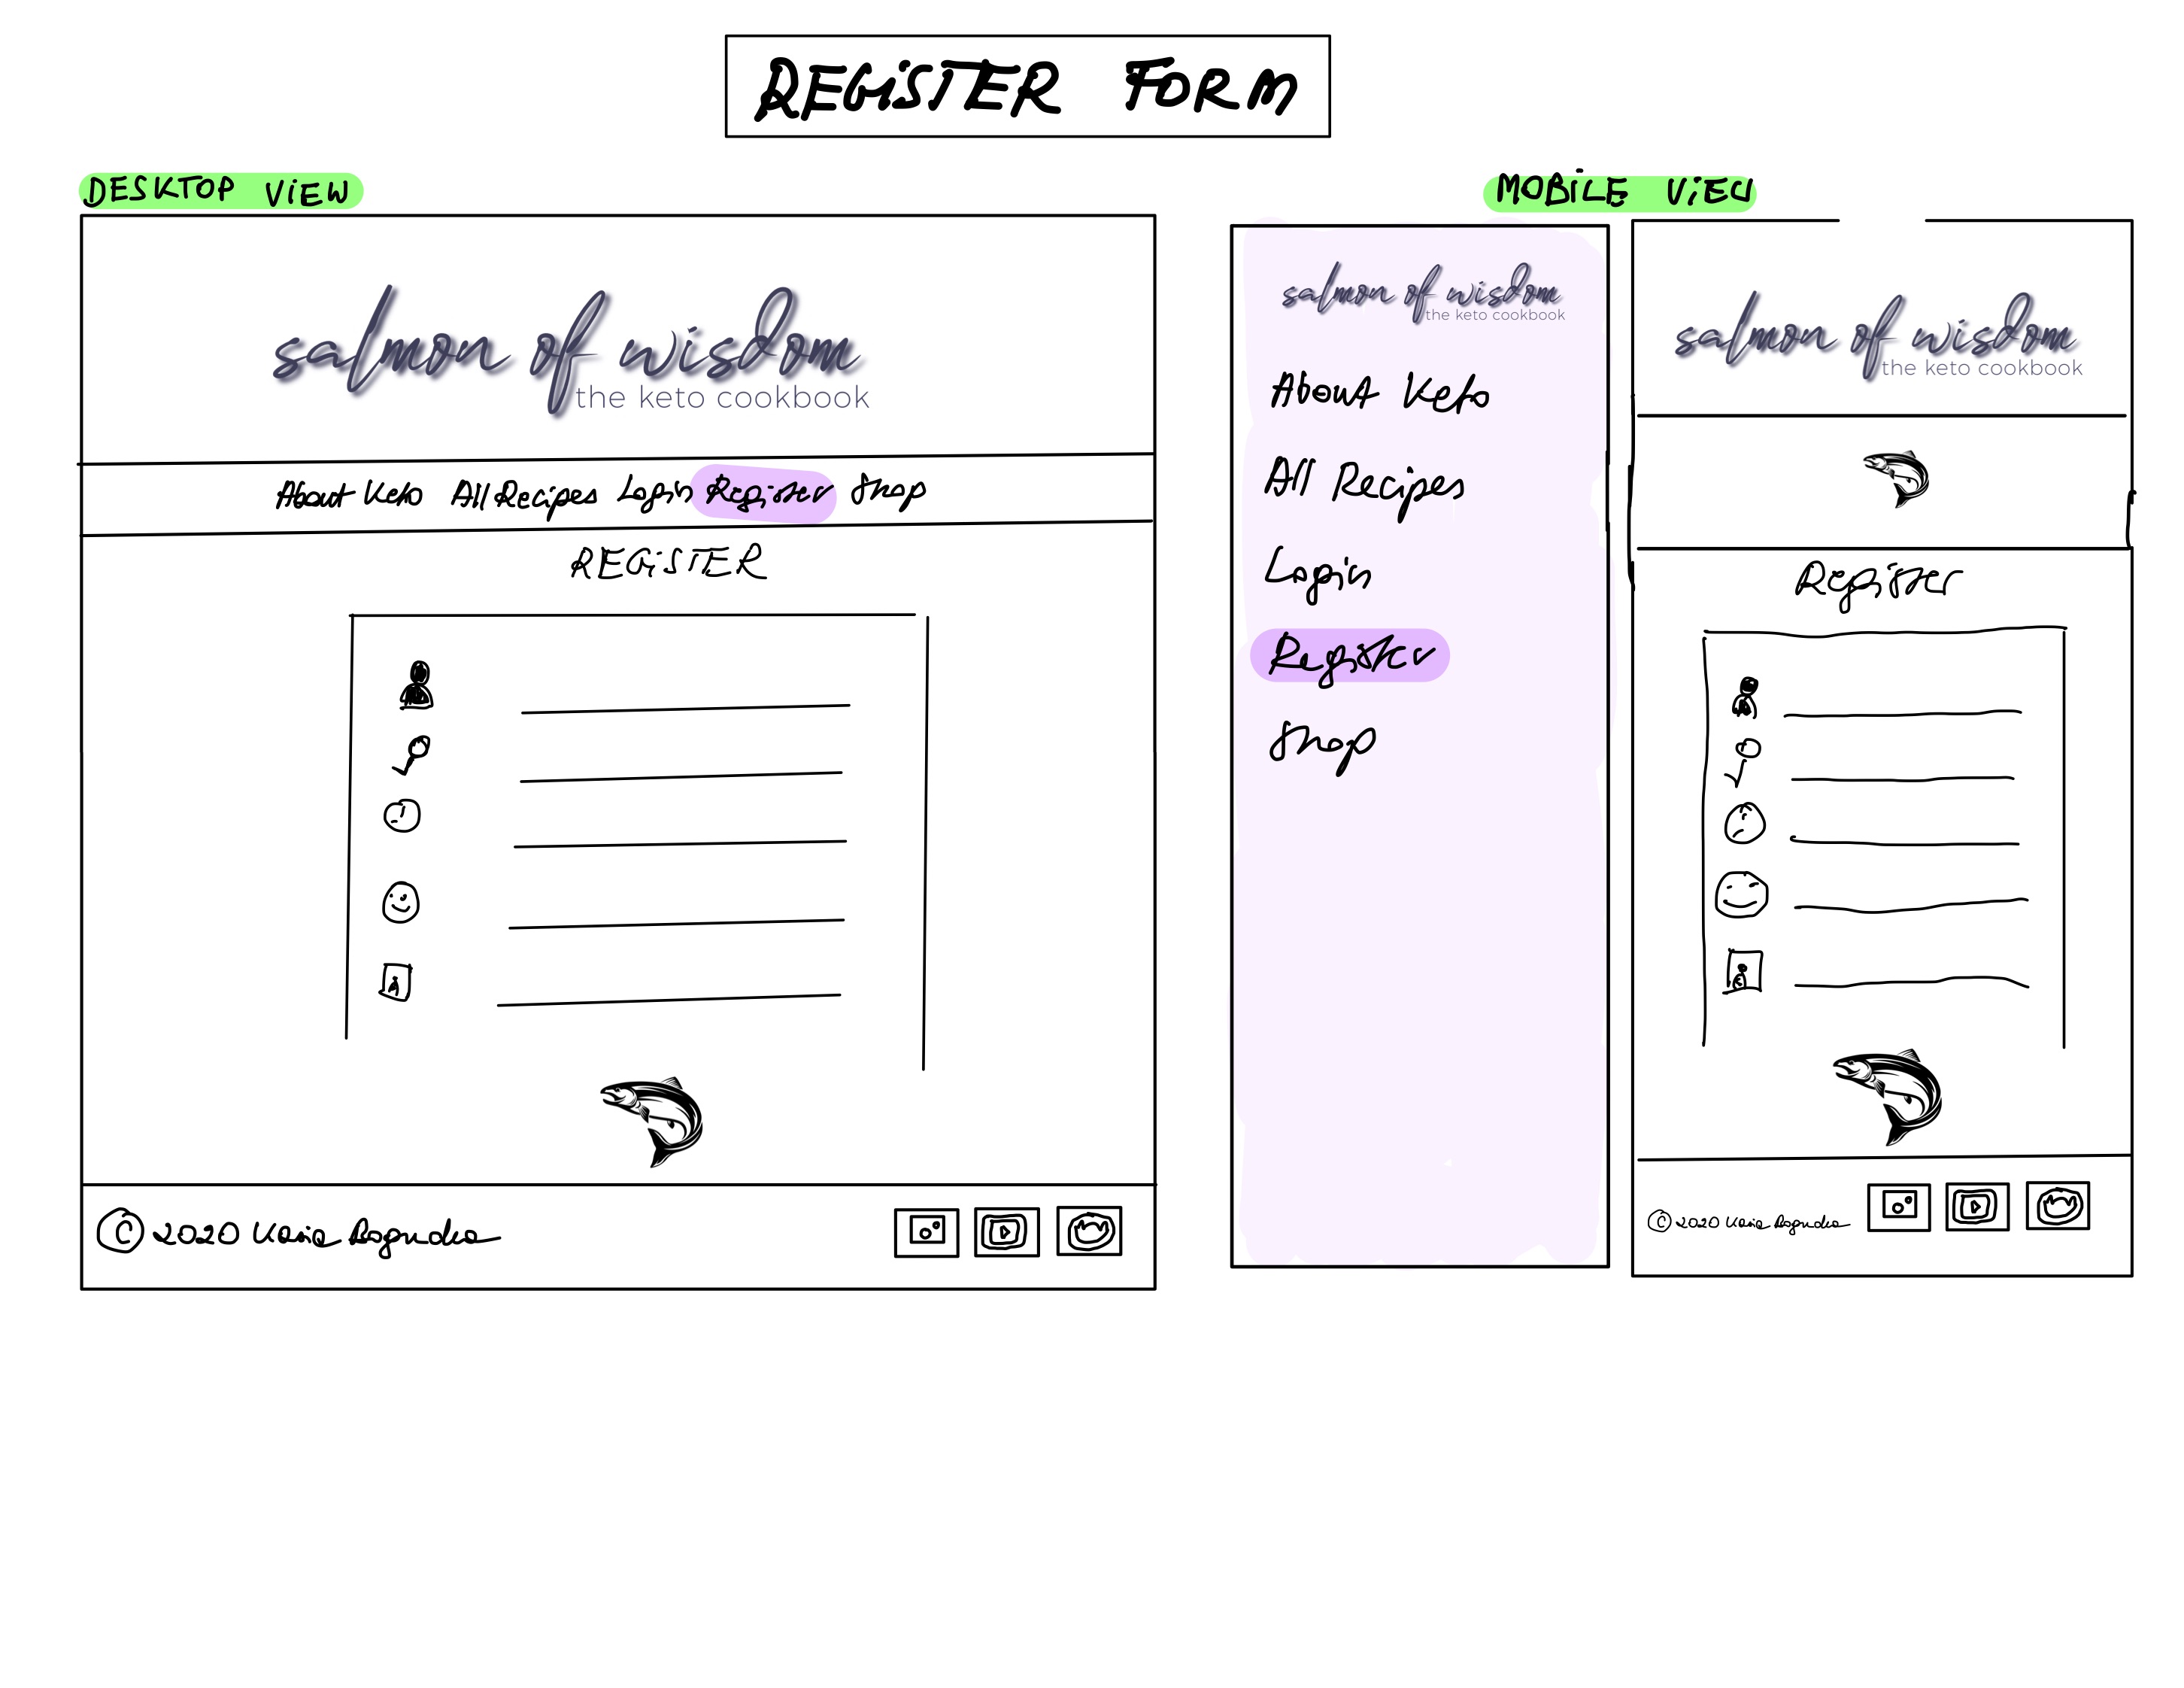 REGISTER FORM
DESKTOP VIEW
salmon of wisdom
the keto cookbook
About Keto All Recipes Login Register Shop
REGISTER
© 2020 Kasia
MOBILE VIEW
salmon of wisdom
the keto cookbook
About Keto
All Recipes
Login
Register
Shop
salmon of wisdom
the keto cookbook
Register
© 2020 Kasia